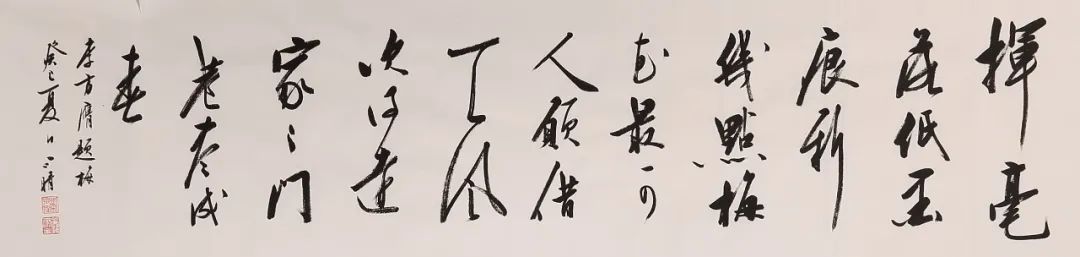 揮毫
落紙墨
痕新
幾點梅
花最可
人願借
天風
吹得遠
家々門
巷盡成
春
李方膺題梅
癸巳夏日